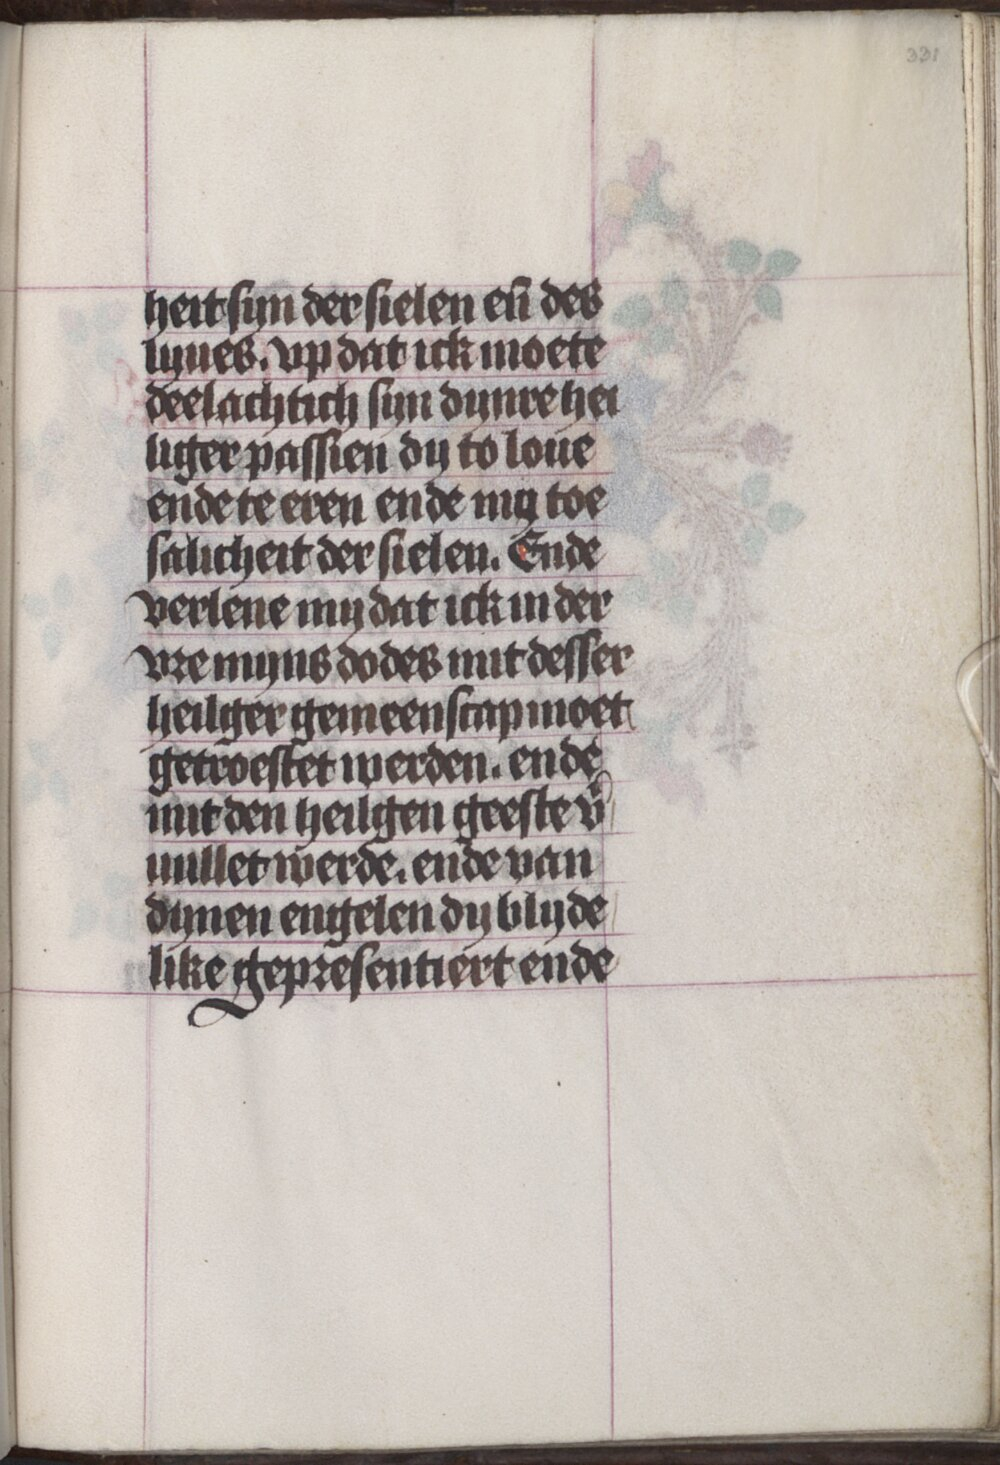 331
heit sijn der sielen en̄ des
lyues. vp dat ick moete
deelachtich sijn dijnre hei
liger passien dy to loue
ende te eren ende my toe
salicheit der sielen. Ende
verlene my dat ick in der
vre myns dodes mit desser
heiliger gemeenscap moet
getroestet werden. ende
mit den heilgen geeste v̄
uullet werde. ende van
dijnen engelen dy blyde
like gepresentiert ende